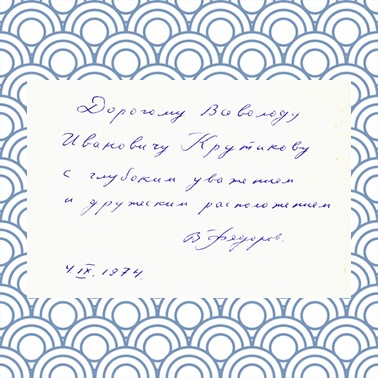 Дорогому Всеволоду
Ивановичу Крутикову
с глубоким уважением
и дружеским расположением
В Фёдоров.
4.IX.1974.